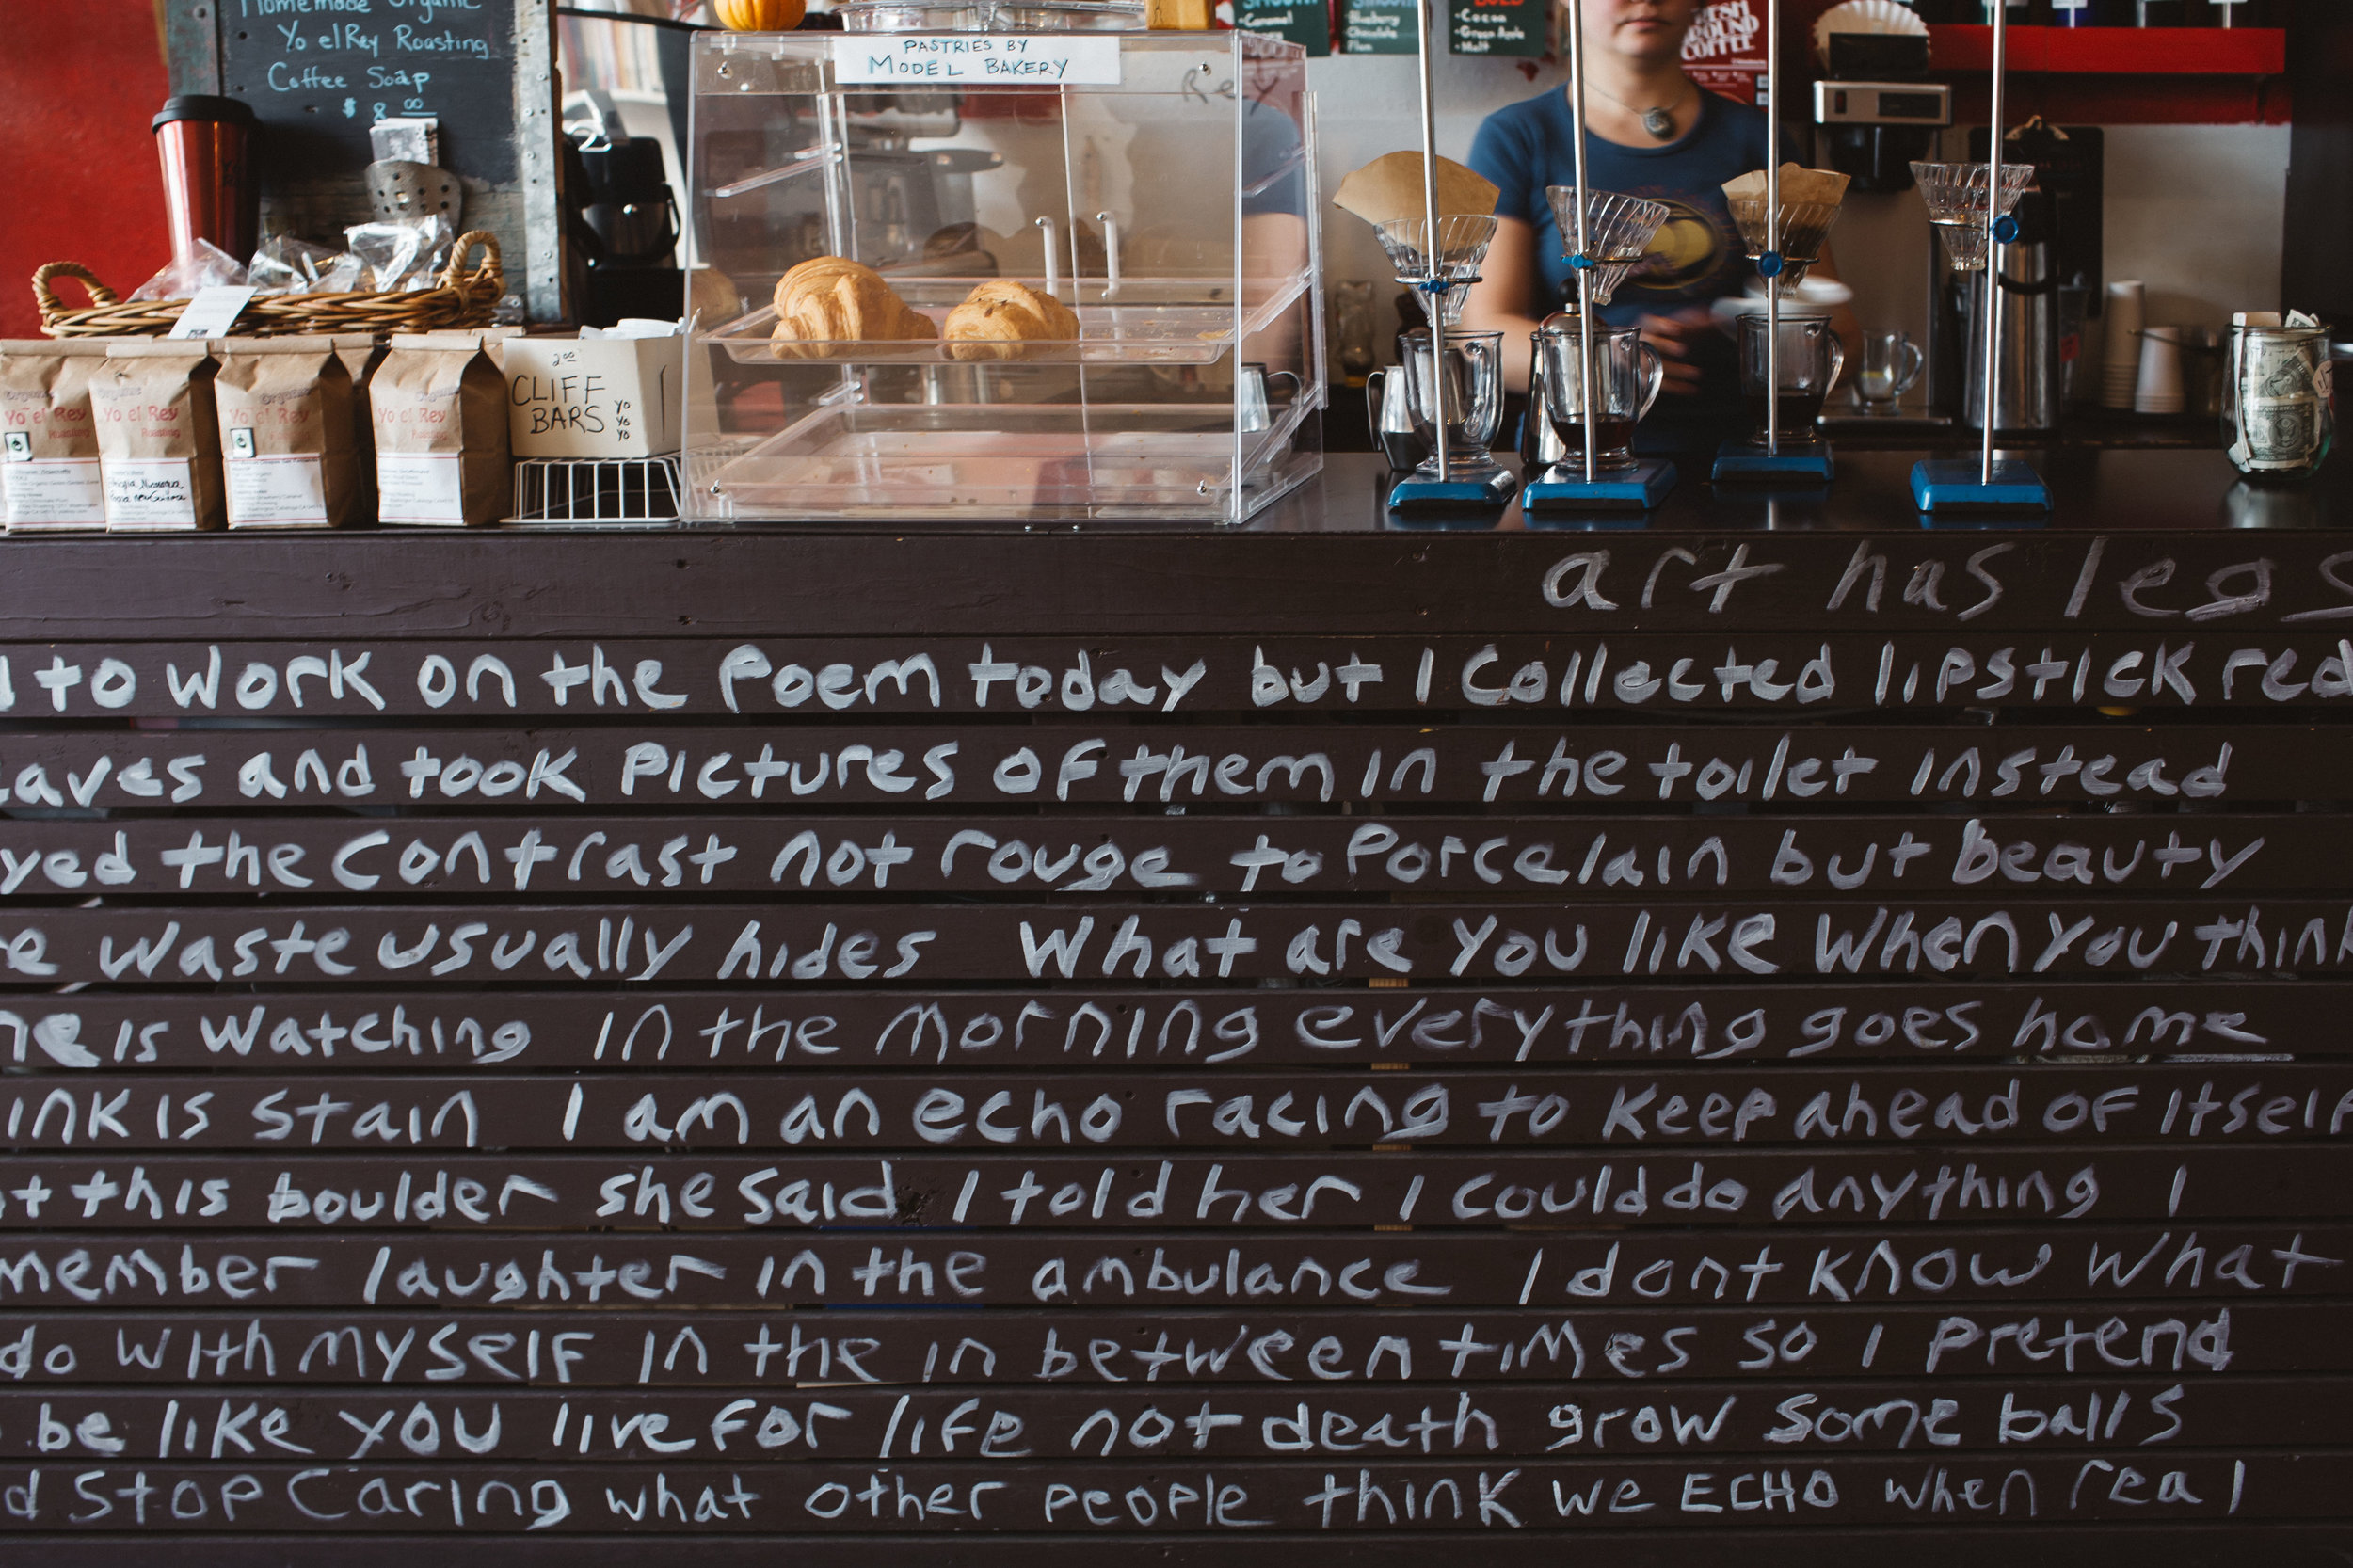 Homemade Organic
Yo el Rey Roasting
Coffee Soap
$ 8 00
PASTRIES BY
MODEL BAKERY
Caramel
SMOOTH
Blueberry
Chocolate
Plum
BOLD
Cocoa
Green Apple
Malt
FRESH
GROUND
COFFEE
Rey
Organic
Yo el Rey
Roasting
Organic
Yo el Rey
Roasting
Organic
Yo el Rey
Roasting
Organic
Yo el Rey
Roasting
2.00
CLIFF
BARS
YO
YO
YO
art has legs
d to work on the poem today but I collected lipstick red
eaves and took pictures of them in the toilet instead
yed the contrast not rouge to porcelain but beauty
e waste usually hides What are you like when you think
ne is watching in the morning everything goes home
ink is stain I am an echo racing to keep ahead of itself
t this boulder she said I told her I could do anything I
member laughter in the ambulance I dont know what
do with myself in the in between times so I pretend
be like you live for life not death grow some balls
d stop caring what other people think we ECHO when real